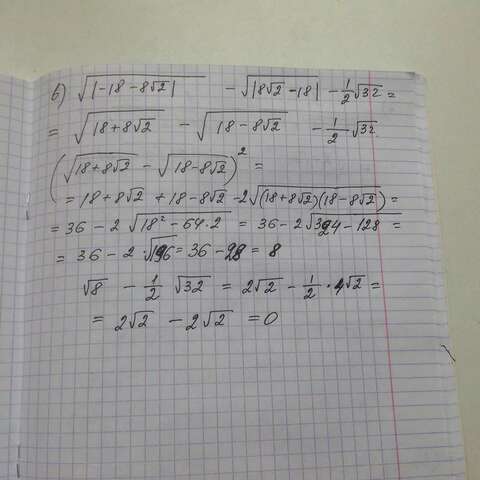 в) √|-18-8√2| - √|8√2-18| - 1/2√32 =
= √18+8√2 - √18-8√2 - 1/2√32.
(√18+8√2 - √18-8√2)² =
= 18+8√2 + 18-8√2 - 2√(18+8√2)(18-8√2) =
= 36 - 2√18²-64·2 = 36-2√324-128 =
= 36 - 2·√196 = 36 - 28 = 8
√8 - 1/2 √32 = 2√2 - 1/2 · 4√2 =
= 2√2 - 2√2 = 0